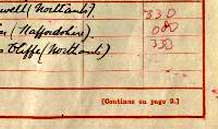 well (Northants). 330
(Staffordshire) 080
Cliffe (Northants) 330
[Continue on page 2.]